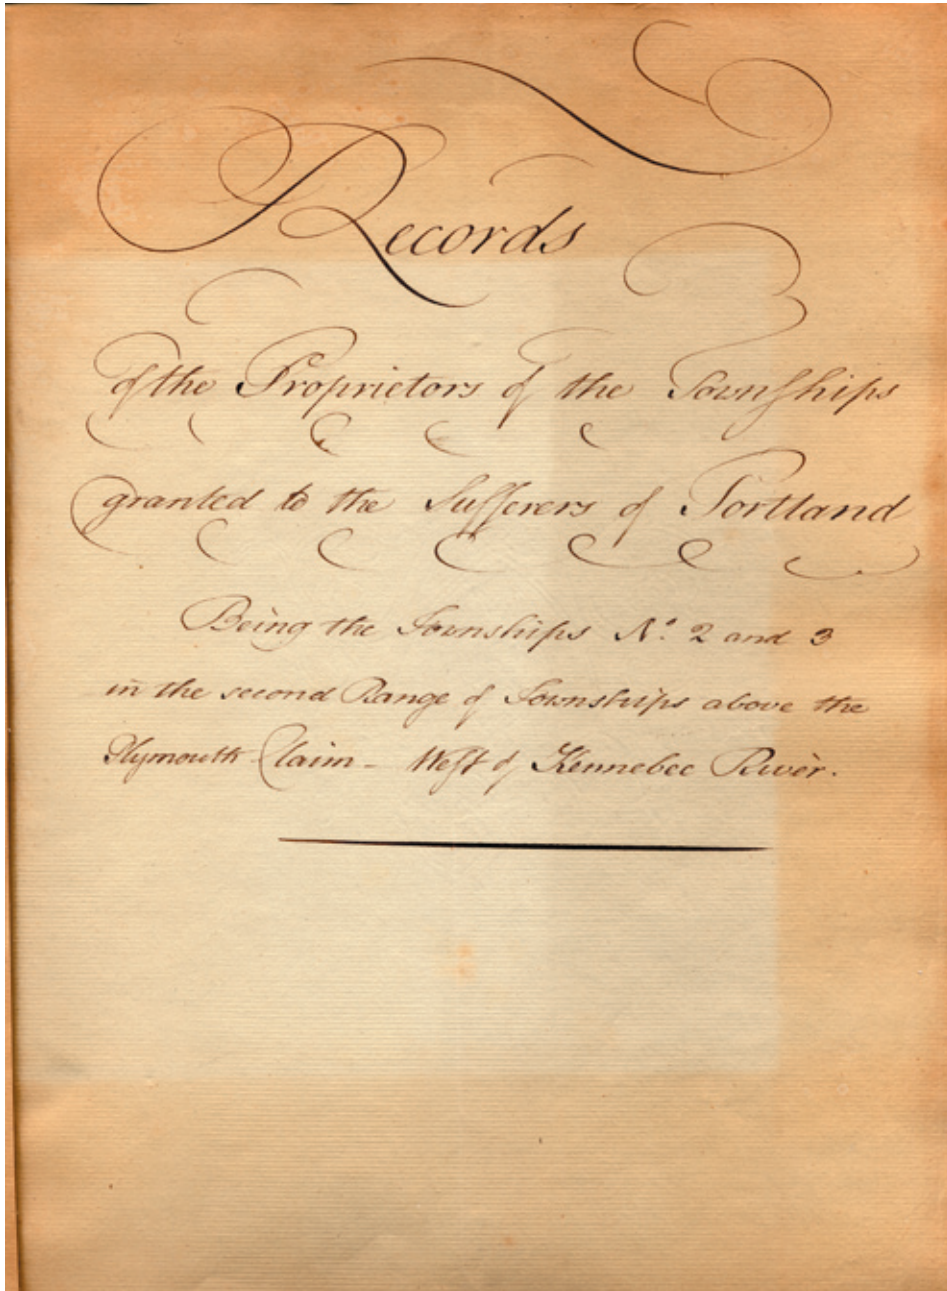 Records
of the Proprietors of the Townships
granted to the Sufferers of Portland
Being the Townships No. 2 and 3
in the second Range of Townships above the
Plymouth Claim - West of Kennebec River.